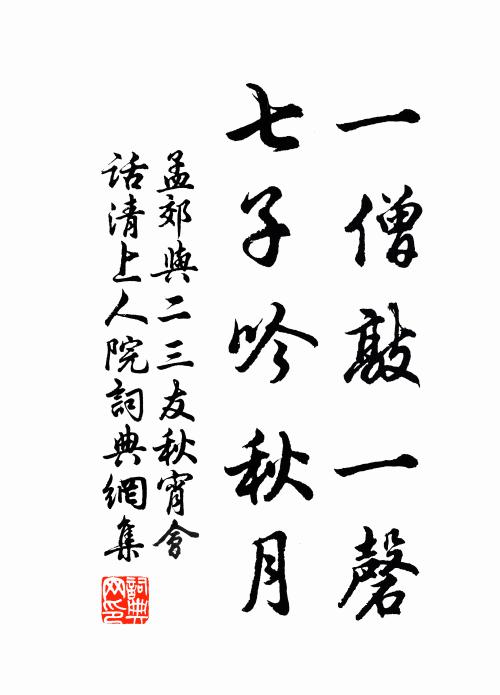 一僧敲一磬
七子吟秋月
孟郊與二三友秋宵會
话清上人院詞典網集
詞典
网印